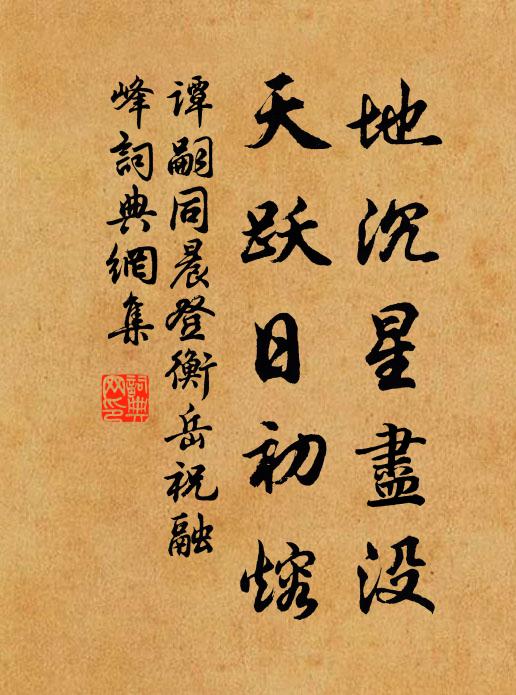 地沉星盡没
天跃日初熔
谭嗣同晨登衡岳祝融
峰詞典網集
詞典
网印